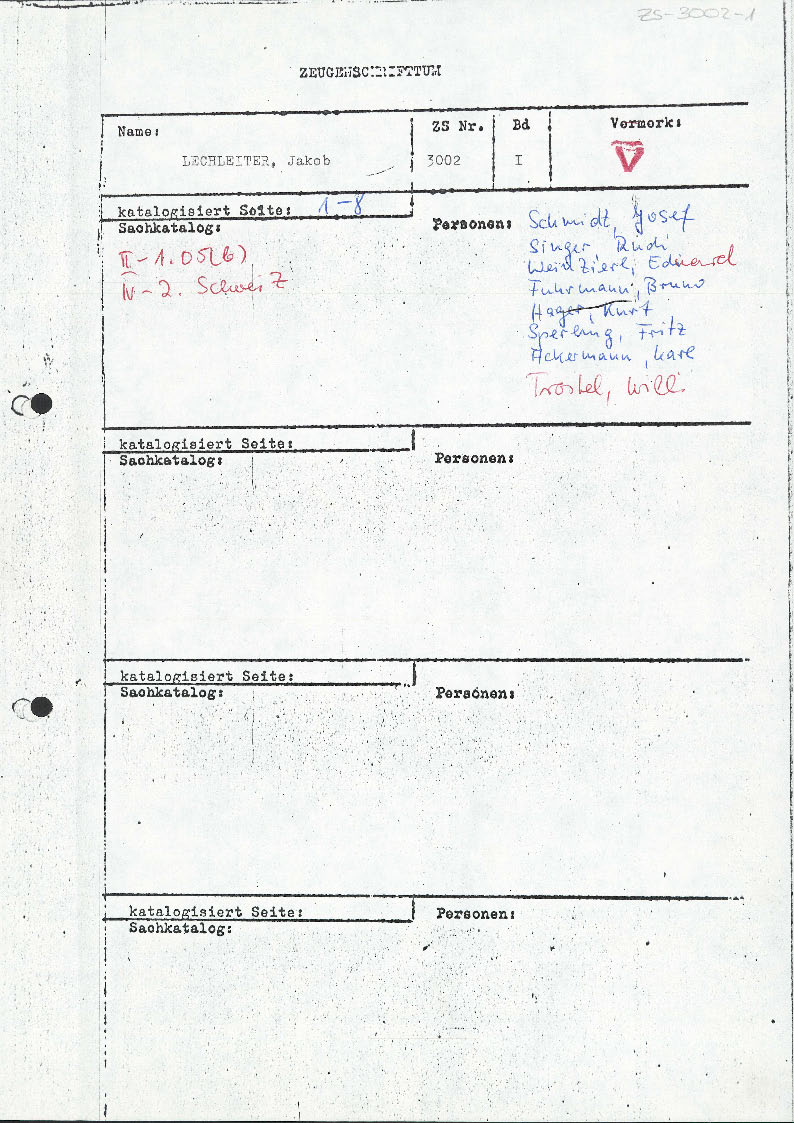 ZS-3002-1
ZEUGENSCHRIFTTUM
Name: ZS Nr. Bd Vermerk:
LECHLEITER, Jakob 3002 I V
katalogisiert Seite: 1-8
Sachkatalog: Personen: Schmidt, Josef
II-1.05(b) Singer, Rudi
IV-2. Schweiz Weinzierl, Eduard
Fuhrmann, Bruno
Hager, Kurt
Sperling, Fritz
Ackermann, Karl
Trostel, Willi
katalogisiert Seite:
Sachkatalog: Personen:
katalogisiert Seite:
Sachkatalog: Personen:
katalogisiert Seite: Personen:
Sachkatalog: